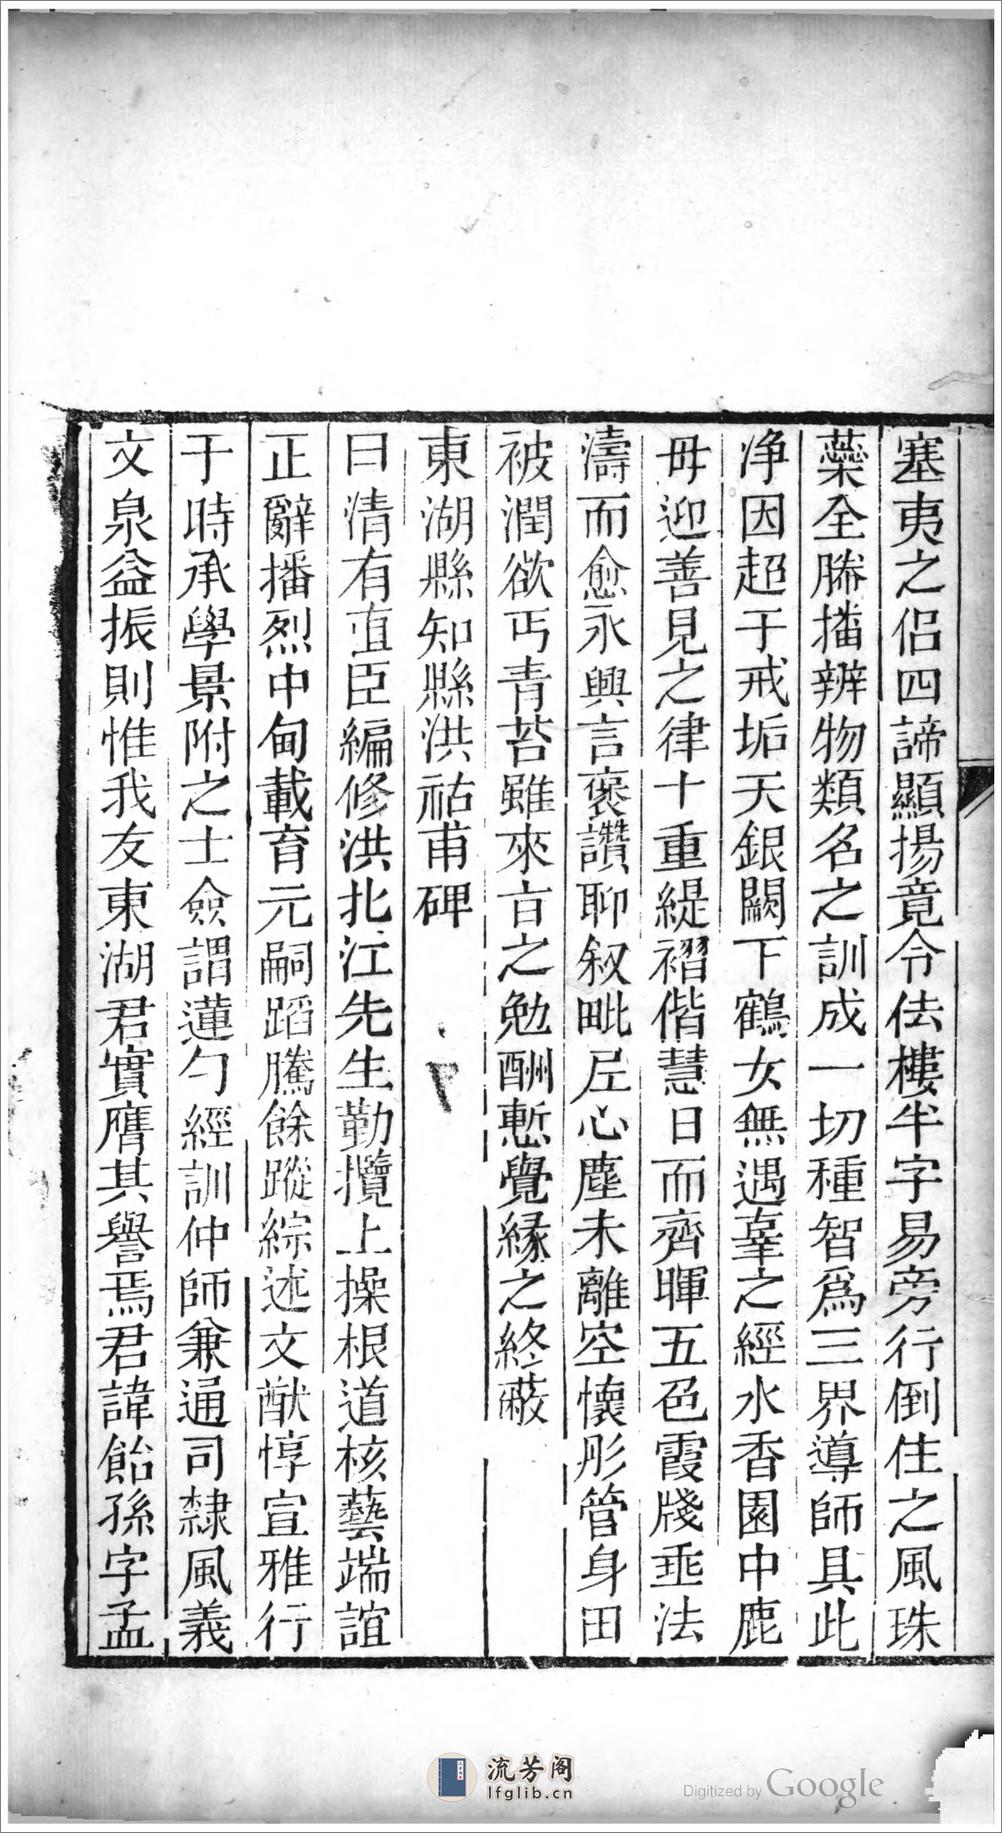 塞夷之侶四諦顯揚竟令佉樓半字易旁行倒住之風珠
蘂全勝播辨物類名之訓成一切種智爲三界導師具此
净因超于戒垢天銀闕下鶴女無遇辜之經水香園中鹿
毋迎善見之律十重緹褶偕慧日而齊暉五色霞牋垂法
濤而愈永興言褒讚聊叙毗㞐心塵未離空懷彤管身田
被潤欲丐青苔雖來言之勉酬慙覺緣之終蔽
東湖縣知縣洪祜甫碑
曰清有直臣編修洪北江先生勤攬上操根道核藝端誼
正辭播烈中甸載育元嗣蹈騰餘蹤綜述文猷惇宣雅行
于時承學景附之士僉謂蓮勺經訓仲師兼通司隸風義
文泉益振則惟我友東湖君實膺其譽焉君諱飴孫字孟
流芳阁
lfglib.cn
Digitized by Google